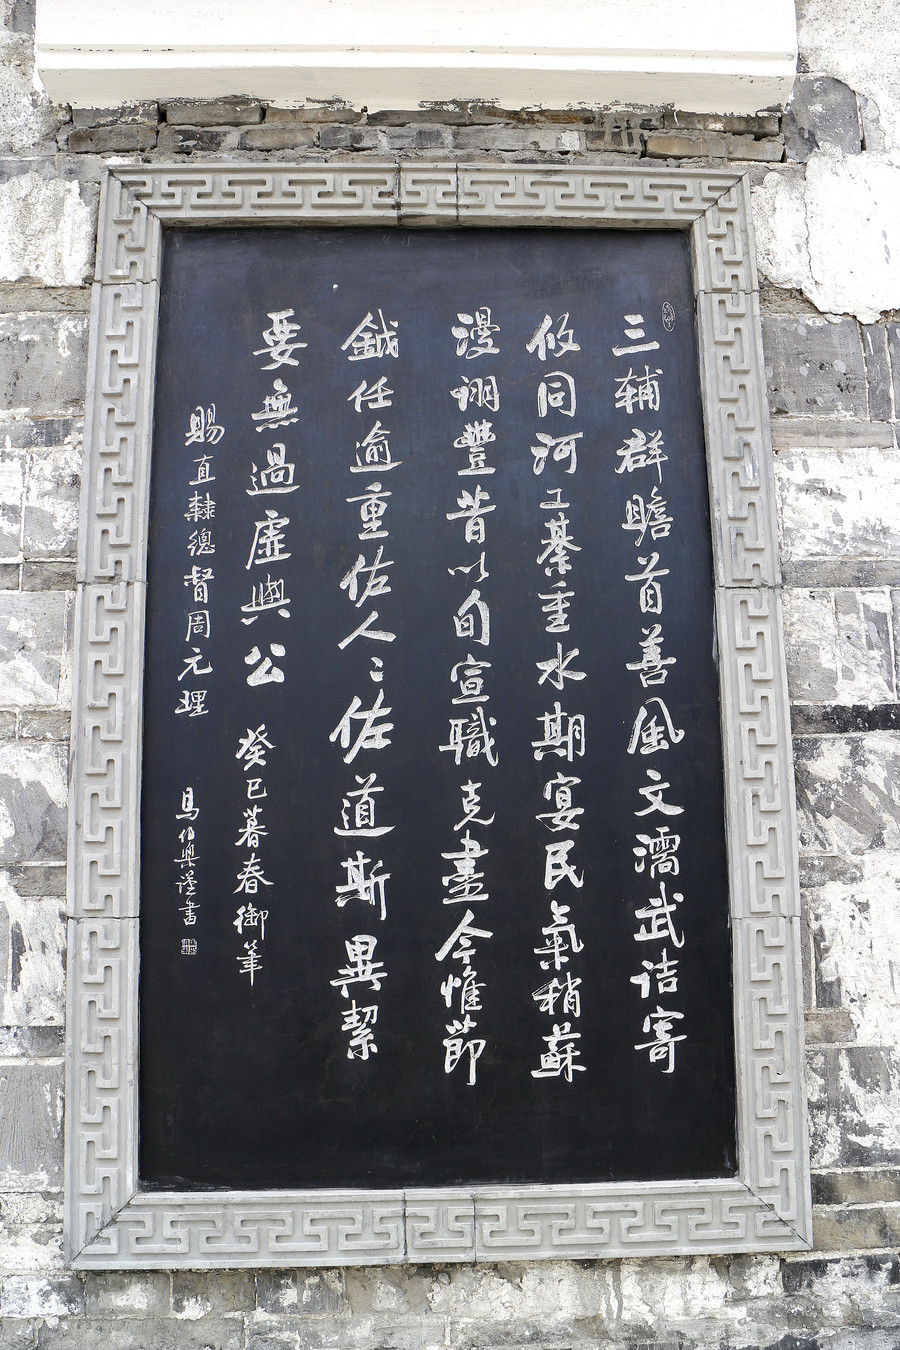 三輔群瞻首善風文濡武詰寄
攸同河工綦重水期宴民氣稍蘇
漫詡豐昔以旬宣職克盡今惟節
鉞任逾重佐人〻佐道斯異絜
要無過虛與公 癸巳暮春御筆
賜直隸總督周元理 馬伯樂謹書